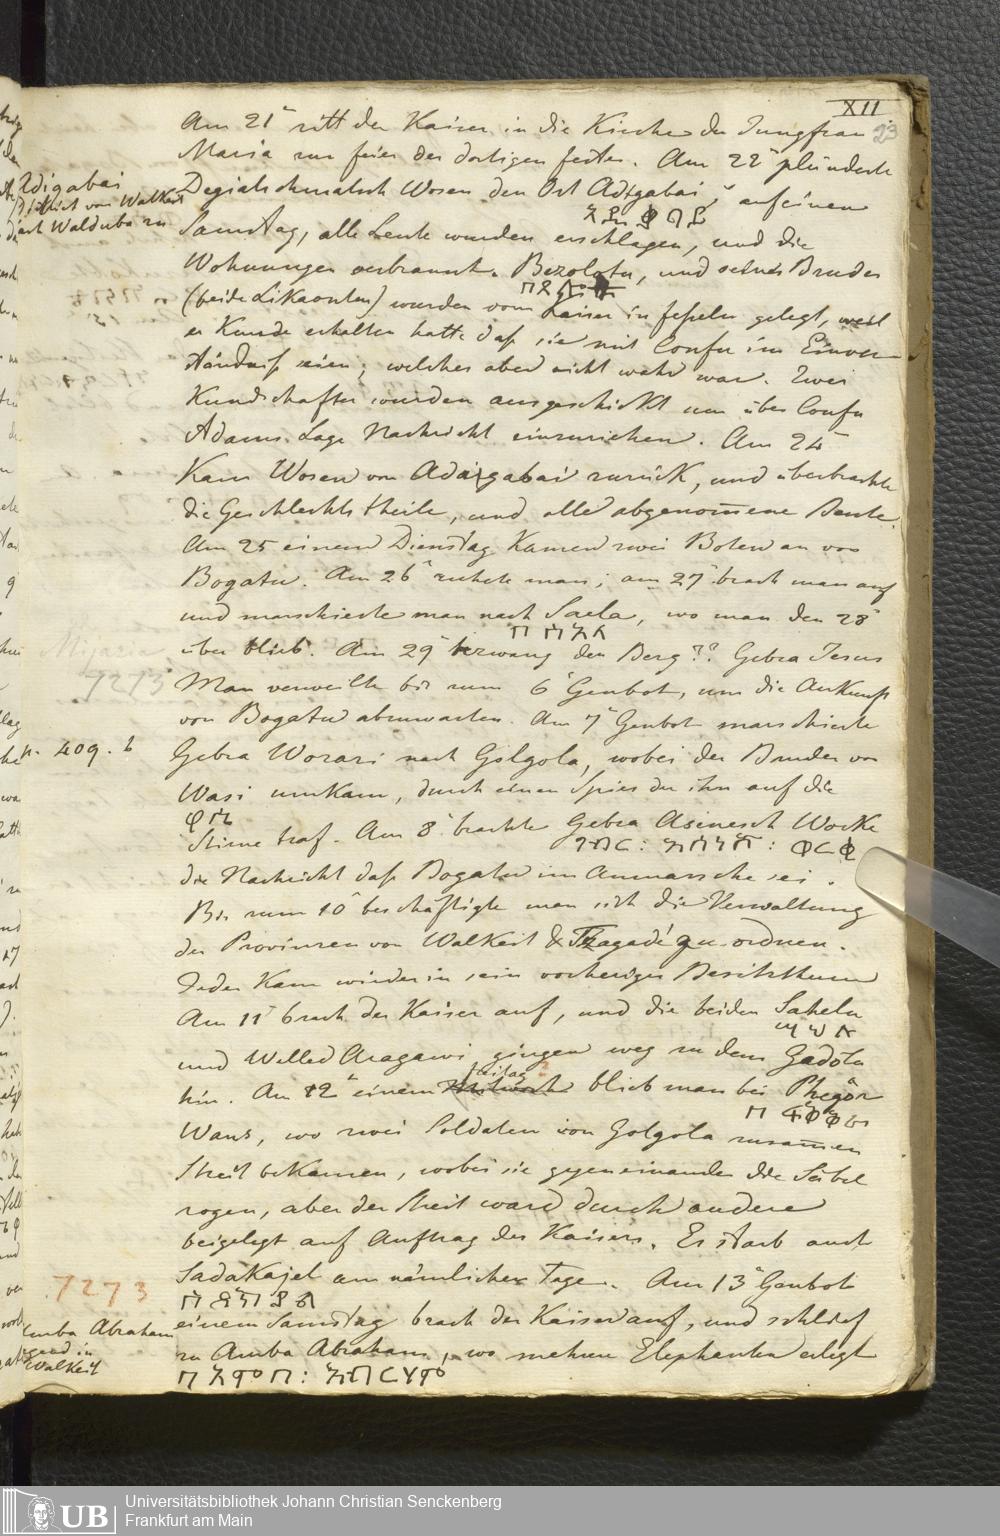 XII
23
Am 21ᵗ ritt der Kaiser in die Kirche der Jungfrau
Maria zur feier des dortigen festes. Am 22ᵗ plünderte
Degiatschmatsch Wosen den Ort Adegabai, auf einen
Samstag, alle Leute wurden erschlagen, und die
Wohnungen verbrannt. Bezolotu, und seine Bruder
(beide Likaonten) wurden vom Kaiser in feßeln gelegt, weil
er Kunde erhalten hatte daß sie mit Confu im Einver
ständniß seien; welches aber nicht wahr war. Zwei
Kundschafter wurden ausgeschickt um über Confu
Adams Lage Nachricht einzuziehen. Am 24ᵗ
kam Wosen von Adaigabai zurück, und überbrachte
die Geschlechtstheile, und alle abgenom̄ene Beute.
Am 25 einem Dienstag kamen zwei Boten an von
Bogatu. Am 26ᵗ ruhete man; am 27ᵗ brach man auf
und marschierte man nach Saela, wo man den 28ᵗ
über blieb. Am 29ᵗ bezwang den Berg ?? Gebra Jesus
Man verweilte bis zum 6ᵗ Genbot, um die Ankunft
von Bogatu abzuwarten. Am 7ᵗ Genbot marschierte
Gebra Worari nach Golgola, wobei der Bruder von
Wasi umkam, durch einen Spies der ihn auf die
Stirne traf. Am 8ᵗ brachte Gebra Asinesch Worke
die Nachricht daß Bogatu im Anmarsche sei.
Bis zum 10ᵗ beschäftigte man sich die Verwaltung
der Provinzen von Walkeit & Tzagadé zu ordnen.
Jeder kam wieder in sein vorheriges Besitzthum
Am 11ᵗ brach der Kaiser auf, und die beiden Sahelu
und Welled Aragawi gingen weg zu dem Gadôtu
hin. Am 12ᵗ einem freitag ? blieb man bei Phegôr
Wans, wo zwei Soldaten von Golgola zusam̄en
Streit bekamen, wobei sie gegeneinander die Säbel
zogen, aber der Streit ward durch andere
beigelegt auf Auftrag des Kaisers. Es starb auch
Sadakajel am nämlichen Tage. Am 13ᵗ Genbot
einem Samstag brach der Kaiser auf, und schlief
zu Amba Abraham, wo mehrere Elephanten erlegt
Adigabai
District von Walkeit
nach Walduba zu
Migaria
7273
p. 409. b
7273
Amba Abraham
in
Walkeit
Universitätsbibliothek Johann Christian Senckenberg
Frankfurt am Main
UB